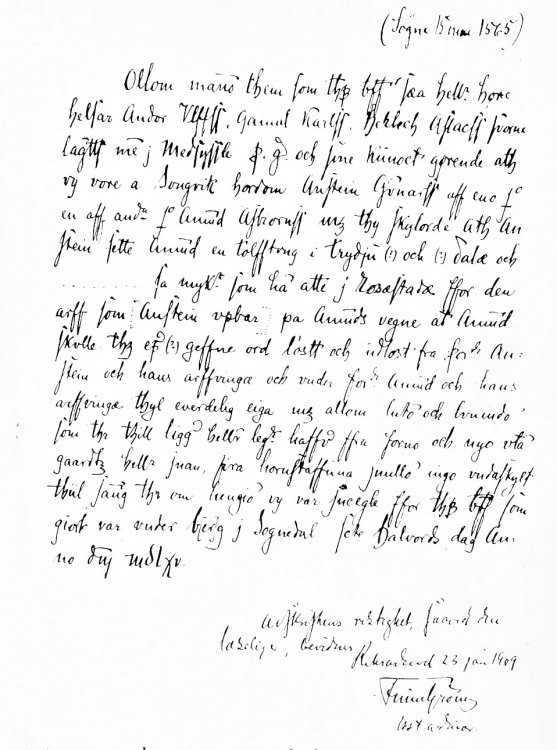 (Sogne 15 mai 1565)
Ollom manō them som thȝ bff sæa hellr hore
helsar Andor Vlffss, Gamul Karlss, Aslacss svorne
lagtts me j p. g. och sine kunoct gørende ath
vy vore a Songvik hordom Anstein Gūnarss aff eno fo
en aff andn fo Amūd Asbiornss mȝ thy skylorde ath An
stein sette Amūd en tolfftong i trydju (?) och (?) dalæ och
. . . . . . . . . . sa mykt som hā atte j Rosæstadæ ffor den
arff som Anstein vpbar pa Amūds vegne at Amūd
skulle thȝ efr (?) geffne ord løstt och idtost fra for An=
stein och hans arffvingæ och vnder for Amūd och hans
arffvingæ thyl everdelig eiga mȝ allom luto och lvnundo
som thr thill ligg hellr legt haffr ffra forno och nyo vta
gaardȝ hellr jnan, fira hornstaffuna jnullo ingo vndaskylt
thiil sang thr om hengio vy var jncegle ffor thȝ bff som
giort var vnder bjerg j Sognedal scte Halvords dag An=
no dnj mdlxv.
Avskriftens rektighet, saavidt den
læselige, bevidnes
Riksarkivet 23 jan 1909